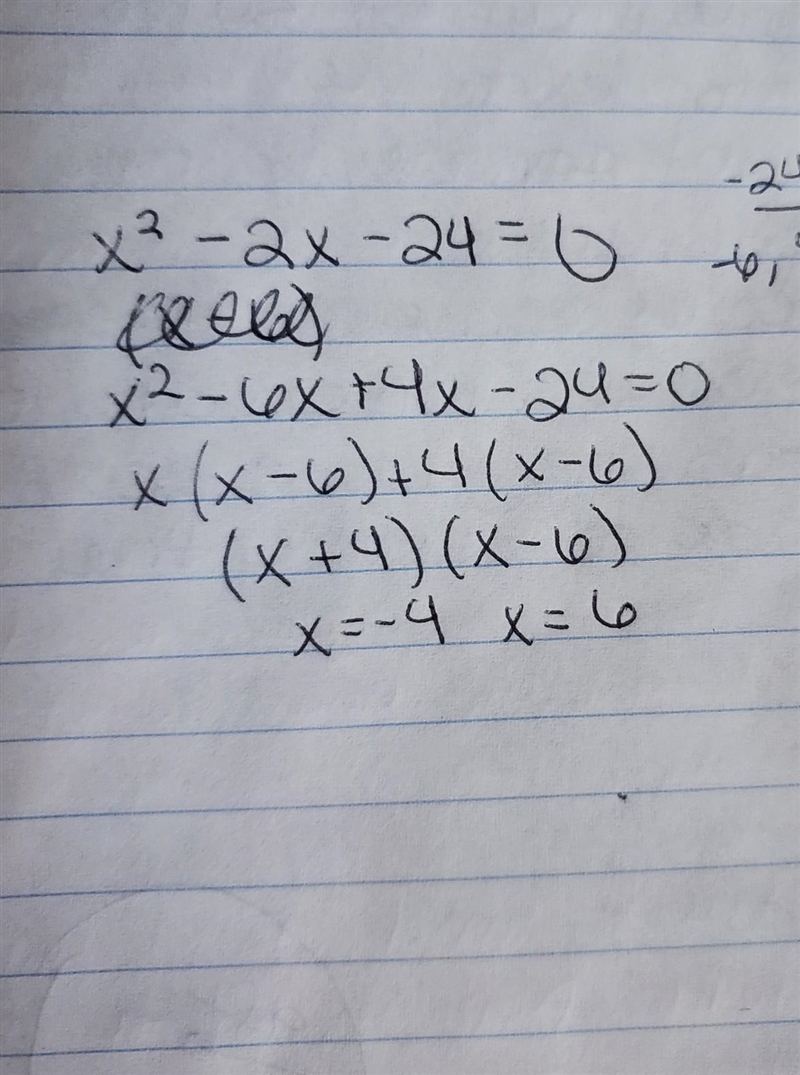 x² - 2x - 24 = 0
x² - 6x + 4x - 24 = 0
x(x - 6) + 4(x - 6)
(x + 4)(x - 6)
x = -4 x = 6
-24
-6,